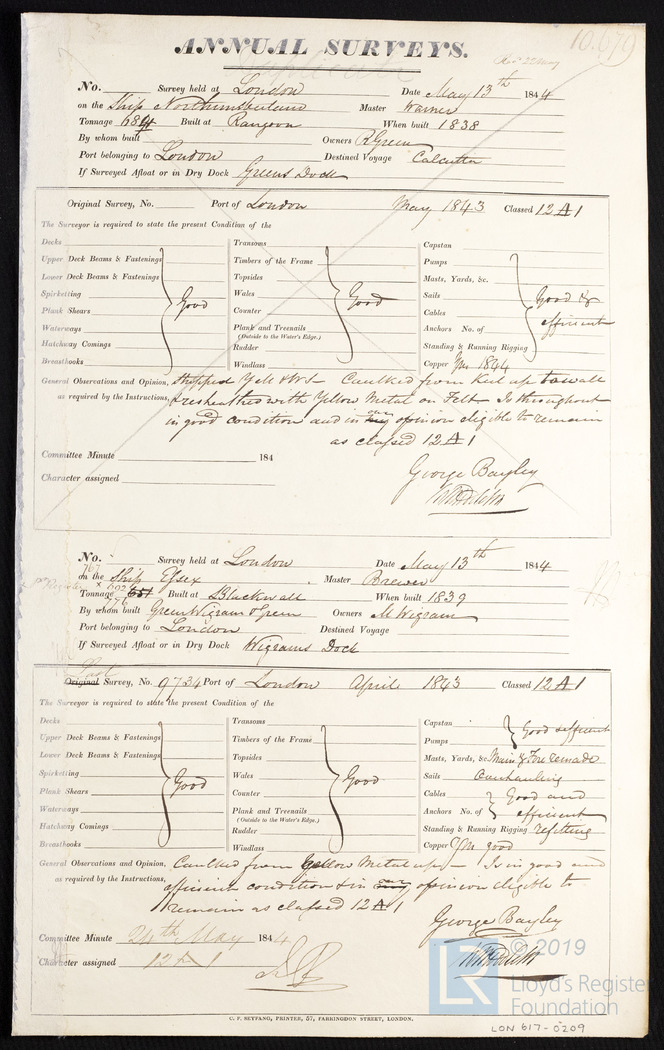 10.679
ANNUAL SURVEYS.
Duplicate
No. Survey held at London Date May 13th 1844
on the Ship Northumberland Master Warner
Tonnage Built at Rangoon When built 1838
By whom built Owners R Green
Port belonging to London Destined Voyage Calcutta
If Surveyed Afloat or in Dry Dock Greens Dock
Original Survey, No. Port of London May 1843 Classed 12 A 1
The Surveyor is required to state the present Condition of the
Decks
Upper Deck Beams & Fastenings
Lower Deck Beams & Fastenings
Spirketting
Plank Shears
Waterways
Hatchway Comings
Breasthooks
Good
Transoms
Timbers of the Frame
Topsides
Wales
Counter
Plank and Treenails
(Outside to the Water's Edge.)
Rudder
Windlass
Good
Capstan
Pumps
Masts, Yards, &c.
Sails
Cables
Anchors No. of
Standing & Running Rigging
Good &
efficient
Copper Ym 1844
General Observations and Opinion, Stripped Caulked from Keel up to wale
as required by the Instructions, & resheathed with Yellow Metal on Felt - Is throughout
in good condition and in our opinion eligible to remain
as classed 12 A 1
Committee Minute 184
Character assigned
George Bayley
No. Survey held at London Date May 13th 1844
on the Ship Essex Master Brewer
Tonnage 651 Built at Blackwall When built 1839
By whom built Green Wigram & Green Owners M Wigram
Port belonging to London Destined Voyage
If Surveyed Afloat or in Dry Dock Wigrams Dock
Last
Original Survey, No. 9734 Port of London April 1843 Classed 12 A 1
The Surveyor is required to state the present Condition of the
Decks
Upper Deck Beams & Fastenings
Lower Deck Beams & Fastenings
Spirketting
Plank Shears
Waterways
Hatchway Comings
Breasthooks
Good
Transoms
Timbers of the Frame
Topsides
Wales
Counter
Plank and Treenails
(Outside to the Water's Edge.)
Rudder
Windlass
Good
Capstan
Pumps
Good & efficient
Masts, Yards, &c. Main & Fore remade
Sails Overhauling
Cables
Anchors No. of
Good and
efficient
Standing & Running Rigging refitting
Copper Ym good
General Observations and Opinion, Caulked from Yellow Metal up - Is in good and
as required by the Instructions, efficient condition & in our opinion eligible to
remain as classed 12 A 1
George Bayley
Committee Minute 24th May 1844
Character assigned 12 A 1
© 2019
LR
Lloyd's Register
Foundation
C. F. SEYFANG, PRINTER, 57, FARRINGDON STREET, LONDON.
LON 617-0209